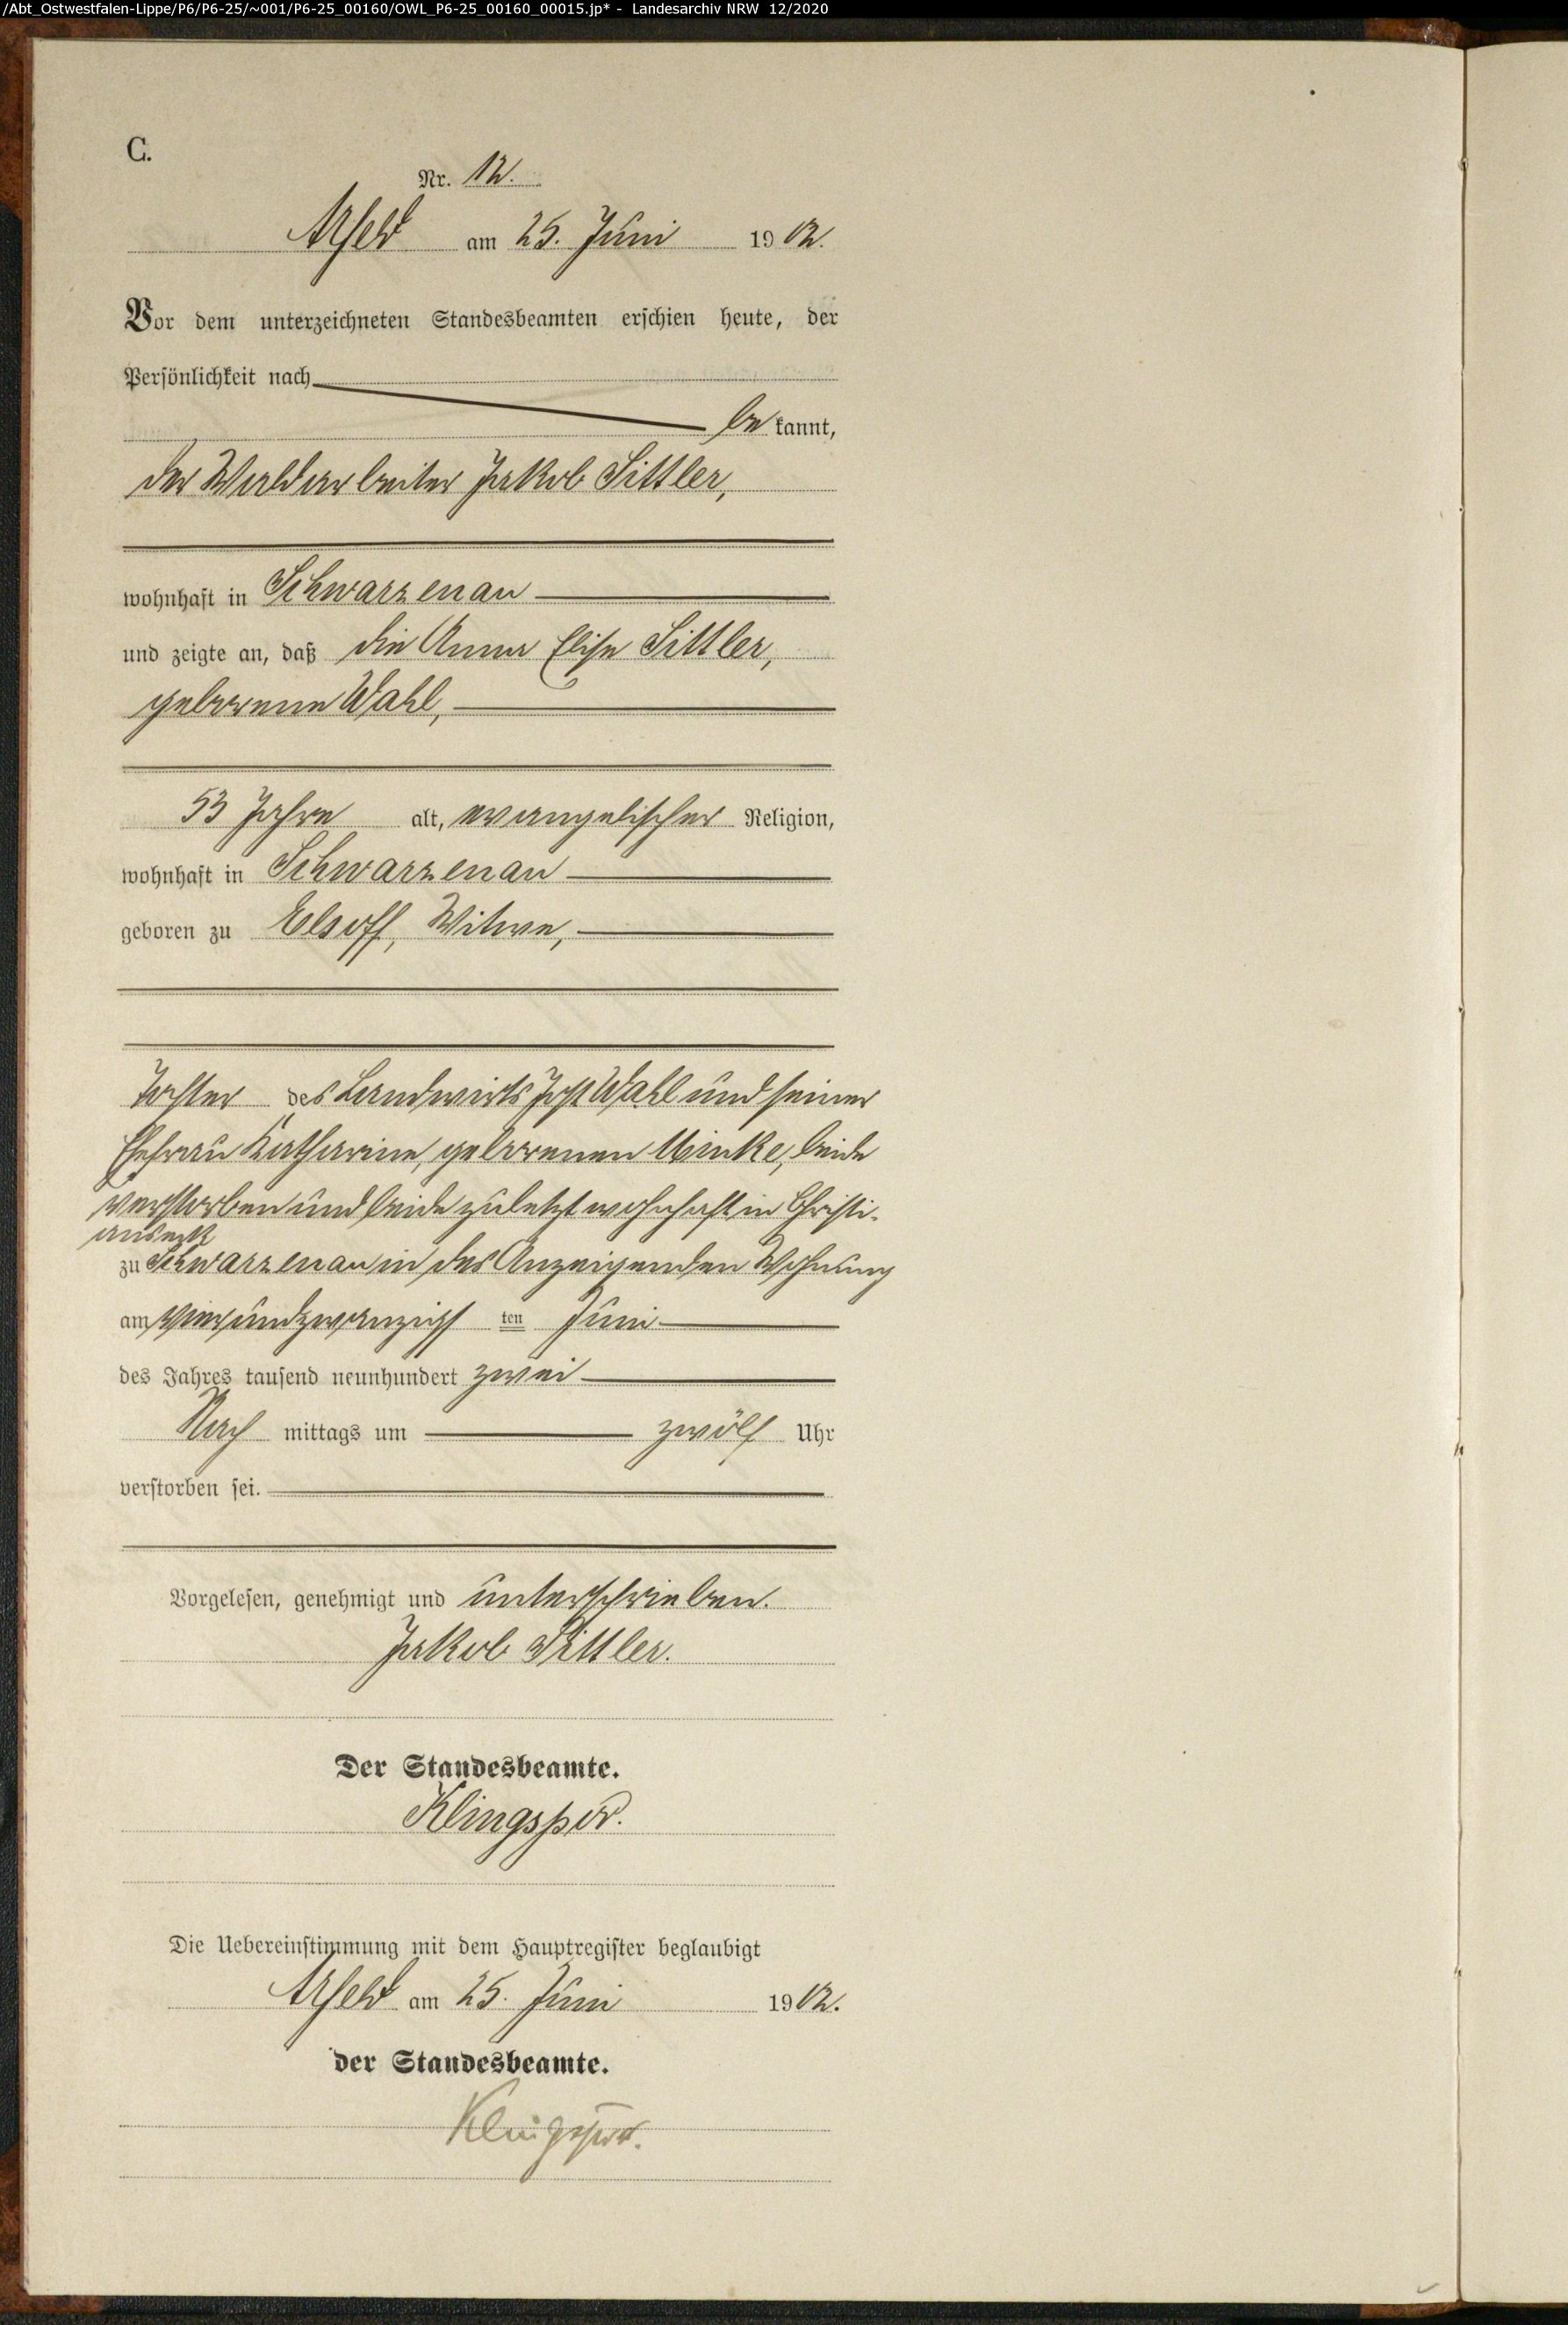 /Abt_Ostwestfalen-Lippe/P6/P6-25/~001/P6-25_00160/OWL_P6-25_00160_00015.jp* - Landesarchiv NRW 12/2020
C.
Nr. 12.
Arfeld am 25. Juni 1902.
Vor dem unterzeichneten Standesbeamten erschien heute, der
Persönlichkeit nach
bekannt,
der Waldarbeiter Jakob Sittler,
wohnhaft in Schwarzenau
und zeigte an, daß die Anna Elise Sittler,
geborene Wahl,
53 Jahre alt, evangelischer Religion,
wohnhaft in Schwarzenau
geboren zu Elsoff, Witwe,
Tochter des Landwirts Jost Wahl und seiner
Ehefrau Katharine, geborenen Minke, beide
verstorben und beide zuletzt wohnhaft in Christi-
anseck
zu Schwarzenau in des Anzeigenden Wohnung
am vierundzwanzigsten Juni
des Jahres tausend neunhundert zwei
Nachmittags um zwölf Uhr
verstorben sei.
Vorgelesen, genehmigt und unterschrieben.
Jakob Sittler.
Der Standesbeamte.
Klingspor.
Die Uebereinstimmung mit dem Hauptregister beglaubigt
Arfeld am 25. Juni 1902.
der Standesbeamte.
Klingspor.